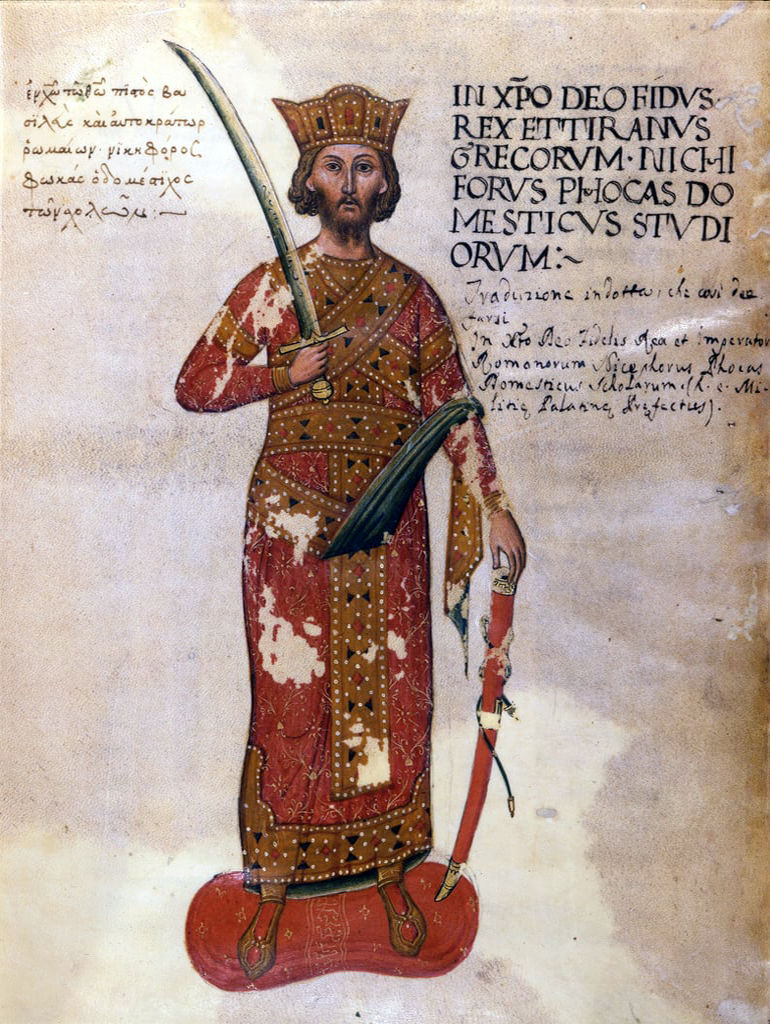 ἐν χῶ τῶ θῶ πιστὸς βα
σιλεὺς καὶ αυτοκράτωρ
ρωμαίων · νικηφόρος
φωκάς ὁ δομέστιχος
τῶν σχολῶν :~
IN XP̅O DEO FIDVS
REX ET TIRANVS
GRECORVM · NICHI
FORVS PHOCAS DO
MESTICVS STVDI
ORVM :~
Traduzione indotta, che così dee
farsi
In Xto Deo Fidelis Rex et Imperator
Romanorum Nicephorus Phocas
Domesticus Scholarum (h. e. Mi-
litię Palatinę Pręfectus).